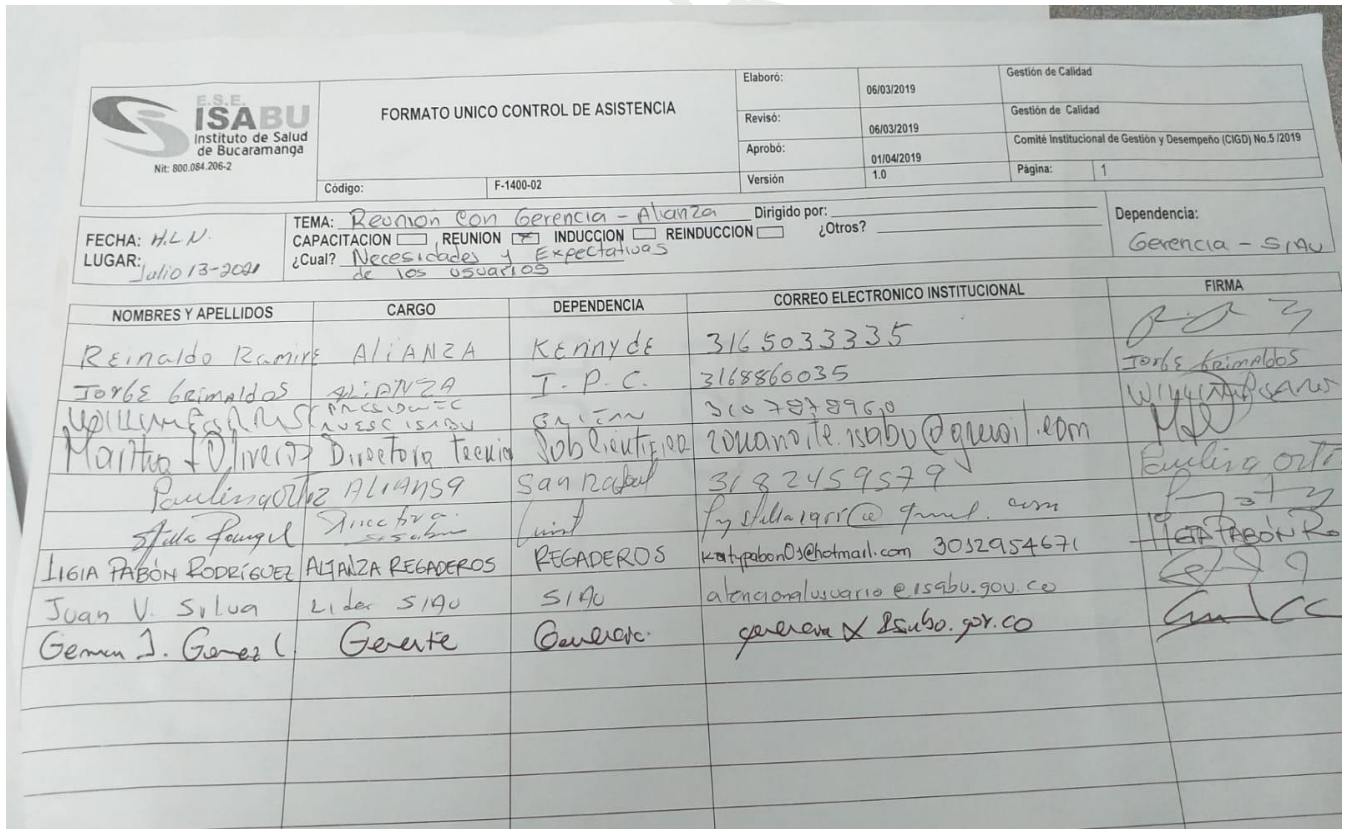 E.S.E.
ISABU
Instituto de Salud
de Bucaramanga
Nit: 800.084.206-2
FORMATO UNICO CONTROL DE ASISTENCIA
Código: F-1400-02
Elaboró: 06/03/2019 Gestión de Calidad
Revisó: 06/03/2019 Gestión de Calidad
Aprobó: 01/04/2019 Comité Institucional de Gestión y Desempeño (CIGD) No.5 /2019
Versión 1.0 Página: 1
FECHA: H.L.N.
LUGAR: Julio 13-2021
TEMA: Reunion Con Gerencia - Alianza Dirigido por:
CAPACITACION REUNION X INDUCCION REINDUCCION ¿Otros?
¿Cual? Necesidades y Expectativas
de los usuarios
Dependencia:
Gerencia - SIAU
NOMBRES Y APELLIDOS CARGO DEPENDENCIA CORREO ELECTRONICO INSTITUCIONAL FIRMA
Reinaldo Ramire ALiANZA KEnnydE 3165033335
JorGE GRimAldos ALiANZA I.P.C. 3168860035 JorGE GRimAldos
PRESIDENTE ISABU
Martha Oliveros Directora Tecnica Subcientifica
Paulina Ortiz ALIANSA San Rafael 3182459579 Paulina Ortiz
Stella Rangel
LIGIA PABÓN RODRÍGUEZ ALIANZA REGADEROS REGADEROS katypabon01@hotmail.com 3012954671 LIGIA PABÓN RO
Juan V. Silva Lider SIAU SIAU atencionalusuario@isabu.gov.co
German J. Gomez Gerente